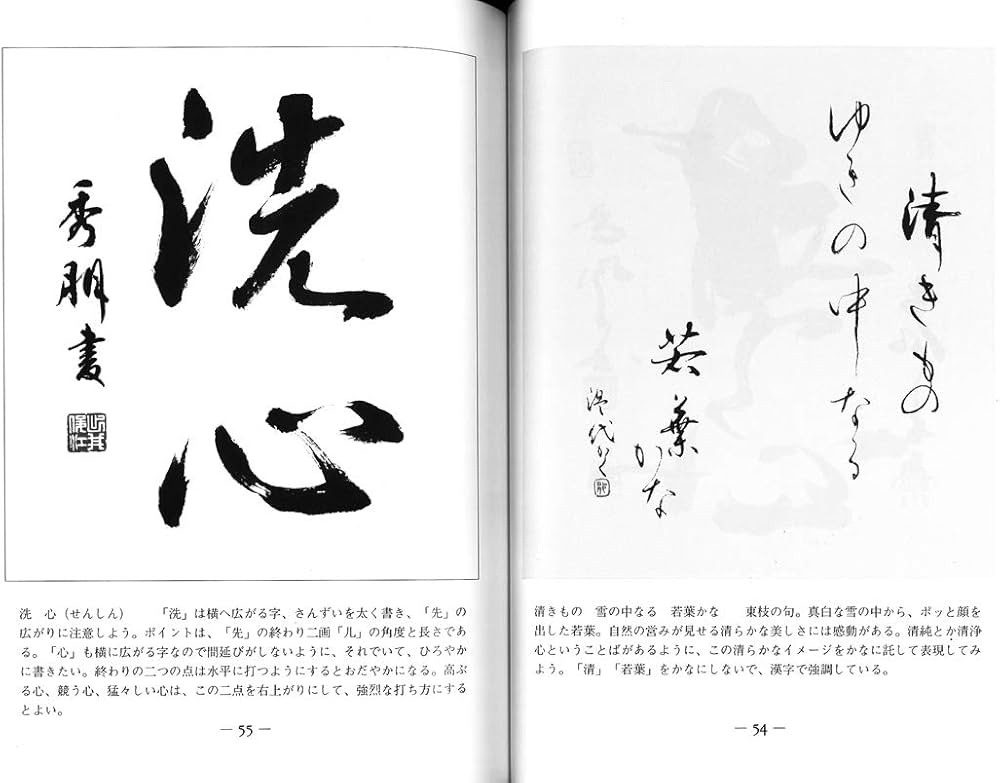 清きもの
ゆきの中なる
若葉
かな
清きもの　雪の中なる　若葉かな　　東枝の句。真白な雪の中から、ポッと顔を
出した若葉。自然の営みが見せる清らかな美しさには感動がある。清純とか清浄
心ということばがあるように、この清らかなイメージをかなに託して表現してみ
よう。「清」「若葉」をかなにしないで、漢字で強調している。
— 54 —
洗心
秀朋書
洗　心（せんしん）　　「洗」は横へ広がる字、さんずいを太く書き、「先」の
広がりに注意しよう。ポイントは、「先」の終わり二画「儿」の角度と長さであ
る。「心」も横に広がる字なので間延びがしないように、それでいて、ひろやか
に書きたい。終わりの二つの点は水平に打つようにするとおだやかになる。高ぶ
る心、競う心、猛々しい心は、この二点を右上がりにして、強烈な打ち方にする
とよい。
— 55 —